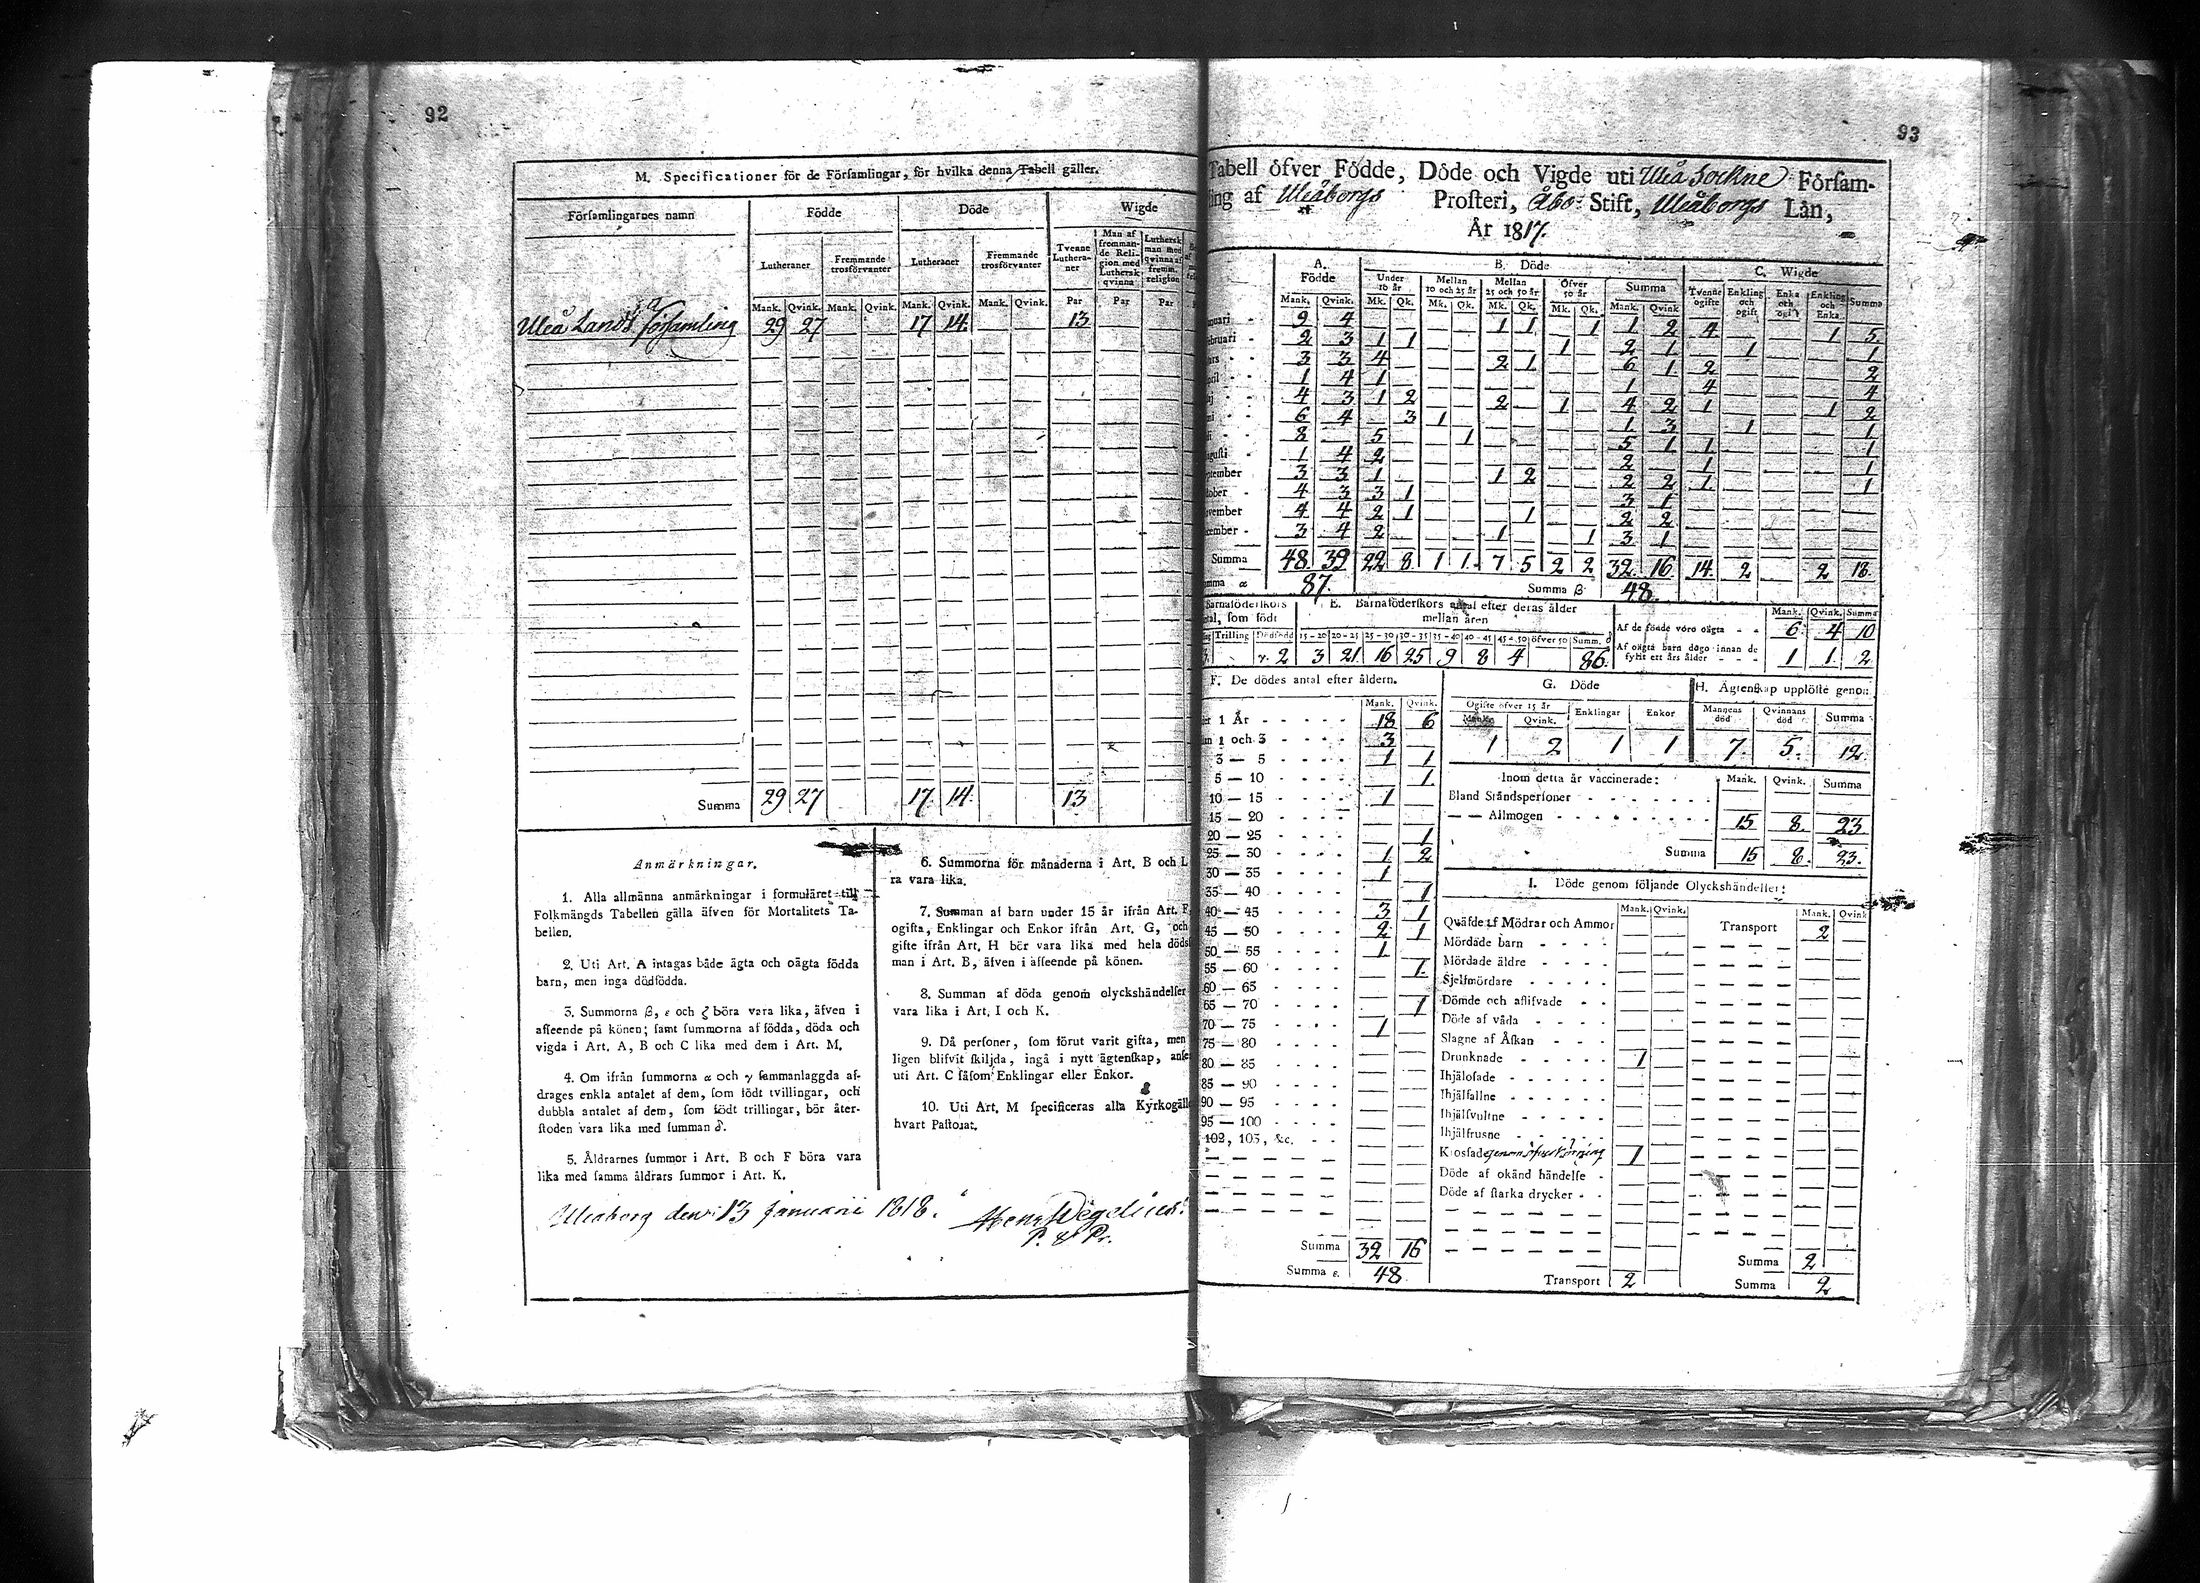 92
M. Specificationer för de Församlingar, för hvilka denna Tabell gäller.
Församlingarnes namn Födde Döde Wigde
Lutheraner Fremmande trosförvanter Lutheraner Fremmande trosförvanter Tvenne Lutheraner Man af fremmande Religion med Luthersk qvinna Luthersk man med qvinna af fremm. religion
Mank. Qvink. Mank. Qvink. Mank. Qvink. Mank. Qvink. Par Par Par
Uleå Lands församling 29 27 17 14 13
Summa 29 27 17 14 13
Anmärkningar.
1. Alla allmänna anmärkningar i formuläret till
Folkmängds Tabellen gälla äfven för Mortalitets Ta-
bellen.
2. Uti Art. A intagas både ägta och oägta födda
barn, men inga dödfödda.
3. Summorna β, ε och ζ böra vara lika, äfven i
afseende på könen; samt summorna af födda, döda och
vigda i Art. A, B och C lika med dem i Art. M.
4. Om ifrån summorna α och γ sammanlaggda af-
drages enkla antalet af dem, som födt tvillingar, och
dubbla antalet af dem, som födt trillingar, bör åter-
stoden vara lika med summan δ.
5. Åldrarnes summor i Art. B och F böra vara
lika med samma åldrars summor i Art. K.
6. Summorna för månaderna i Art. B och L
ra vara lika.
7. Summan af barn under 15 år ifrån Art. F,
ogifta, Enklingar och Enkor ifrån Art. G, och
gifte ifrån Art. H bör vara lika med hela döds
man i Art. B, äfven i afseende på könen.
8. Summan af döda genom olyckshändelser
vara lika i Art. I och K.
9. Då personer, som förut varit gifta, men
ligen blifvit skiljda, ingå i nytt ägtenskap, anse
uti Art. C såsom Enklingar eller Enkor.
10. Uti Art. M specificeras alla Kyrkogäll
hvart Pastorat.
Uleåborg den 13 Januarii 1818. Wegelius
P. & Pr.
93
Tabell öfver Födde, Döde och Vigde uti Uleå Sockne Församling
af Uleåborgs Prosteri, Åbo Stift, Uleåborgs Län,
År 1817.
A. Födde B. Döde C. Wigde
Under 10 år Mellan 10 och 25 år Mellan 25 och 50 år Öfver 50 år Summa Tvenne ogifte Enkling och ogift Enka och ogift Enkling och Enka Summa
Mank. Qvink. Mk. Qk. Mk. Qk. Mk. Qk. Mk. Qk. Mank. Qvink.
nuari 9 4 1 1 1 1 2 4 1 5
ebruari 2 3 1 1 1 2 1 1 1
ars 3 3 4 2 1 6 1 2 2
pril 1 4 1 1 4 4
aj 4 3 1 2 2 1 4 2 1 1 2
ni 6 4 3 1 1 3 1 1
li 8 5 1 5 1 1 1
ugusti 1 4 2 2 1 1
ptember 3 3 1 1 2 2 2 1 1
tober 4 3 3 1 3 1
ovember 4 4 2 1 1 2 2
cember 3 4 2 1 1 3 1
Summa 48 39 22 8 1 1 7 5 2 2 32 16 14 2 2 18
mma α 87. Summa β 48.
Barnaföderskors
tal, som födt
Trilling Dödfödd
γ. 2
E. Barnaföderskors antal efter deras ålder
mellan åren
15-20 20-25 25-30 30-35 35-40 40-45 45-50 öfver 50 Summ. δ
3 21 16 25 9 8 4 86.
Mank. Qvink. Summa
Af de födde voro oägta 6 4 10
Af oägta barn dögo innan de
fyllt ett års ålder 1 1 2
F. De dödes antal efter åldern.
Mank. Qvink.
er 1 År 18 6
an 1 och 3 3
3 — 5 1 1
5 — 10 1
10 — 15 1
15 — 20
20 — 25 1
25 — 30 1 2
30 — 35 1
35 — 40 1
40 — 45 3 1
45 — 50 2 1
50 — 55 1
55 — 60 1
60 — 65
65 — 70 1
70 — 75 1
75 — 80
80 — 85
85 — 90
90 — 95
95 — 100
102, 103, &c.
Summa 32 16
Summa ε. 48
G. Döde
Ogifte öfver 15 år Enklingar Enkor
Mank. Qvink.
1 2 1 1
H. Ägtenskap upplöste genom
Mannens död Qvinnans död Summa
7. 5. 12.
Inom detta år vaccinerade: Mank. Qvink. Summa
Bland Ståndspersoner
— — Allmogen 15 8. 23
Summa 15 8. 23.
I. Döde genom följande Olyckshändelser:
Mank. Qvink. Mank. Qvink
Qväfde af Mödrar och Ammor Transport 2
Mördade barn
Mördade äldre
Sjelfmördare
Dömde och aflifvade
Döde af våda
Slagne af Åskan
Drunknade 1
Ihjälosade
Ihjälfallne
Ihjälsvultne
Ihjälfrusne
Krossade genom 1
Döde af okänd händelse
Döde af starka drycker
Summa 2
Transport 2 Summa 2